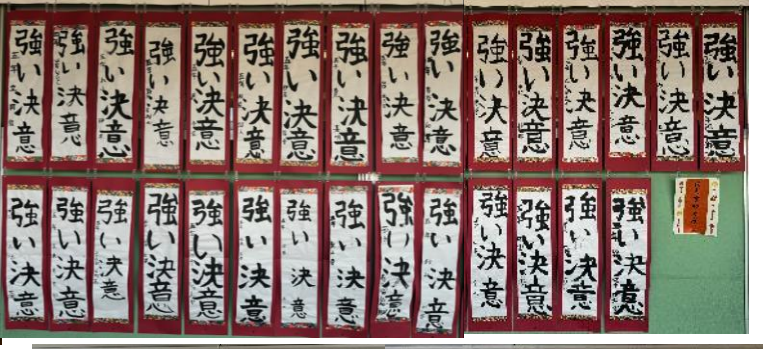 強い決意
強い決意
強い決意
強い決意
強い決意
強い決意
強い決意
強い決意
強い決意
強い決意
強い決意
強い決意
強い決意
強い決意
強い決意
強い決意
強い決意
強い決意
強い決意
強い決意
強い決意
強い決意
強い決意
強い決意
強い決意
強い決意
強い決意
強い決意
強い決意
強い決意